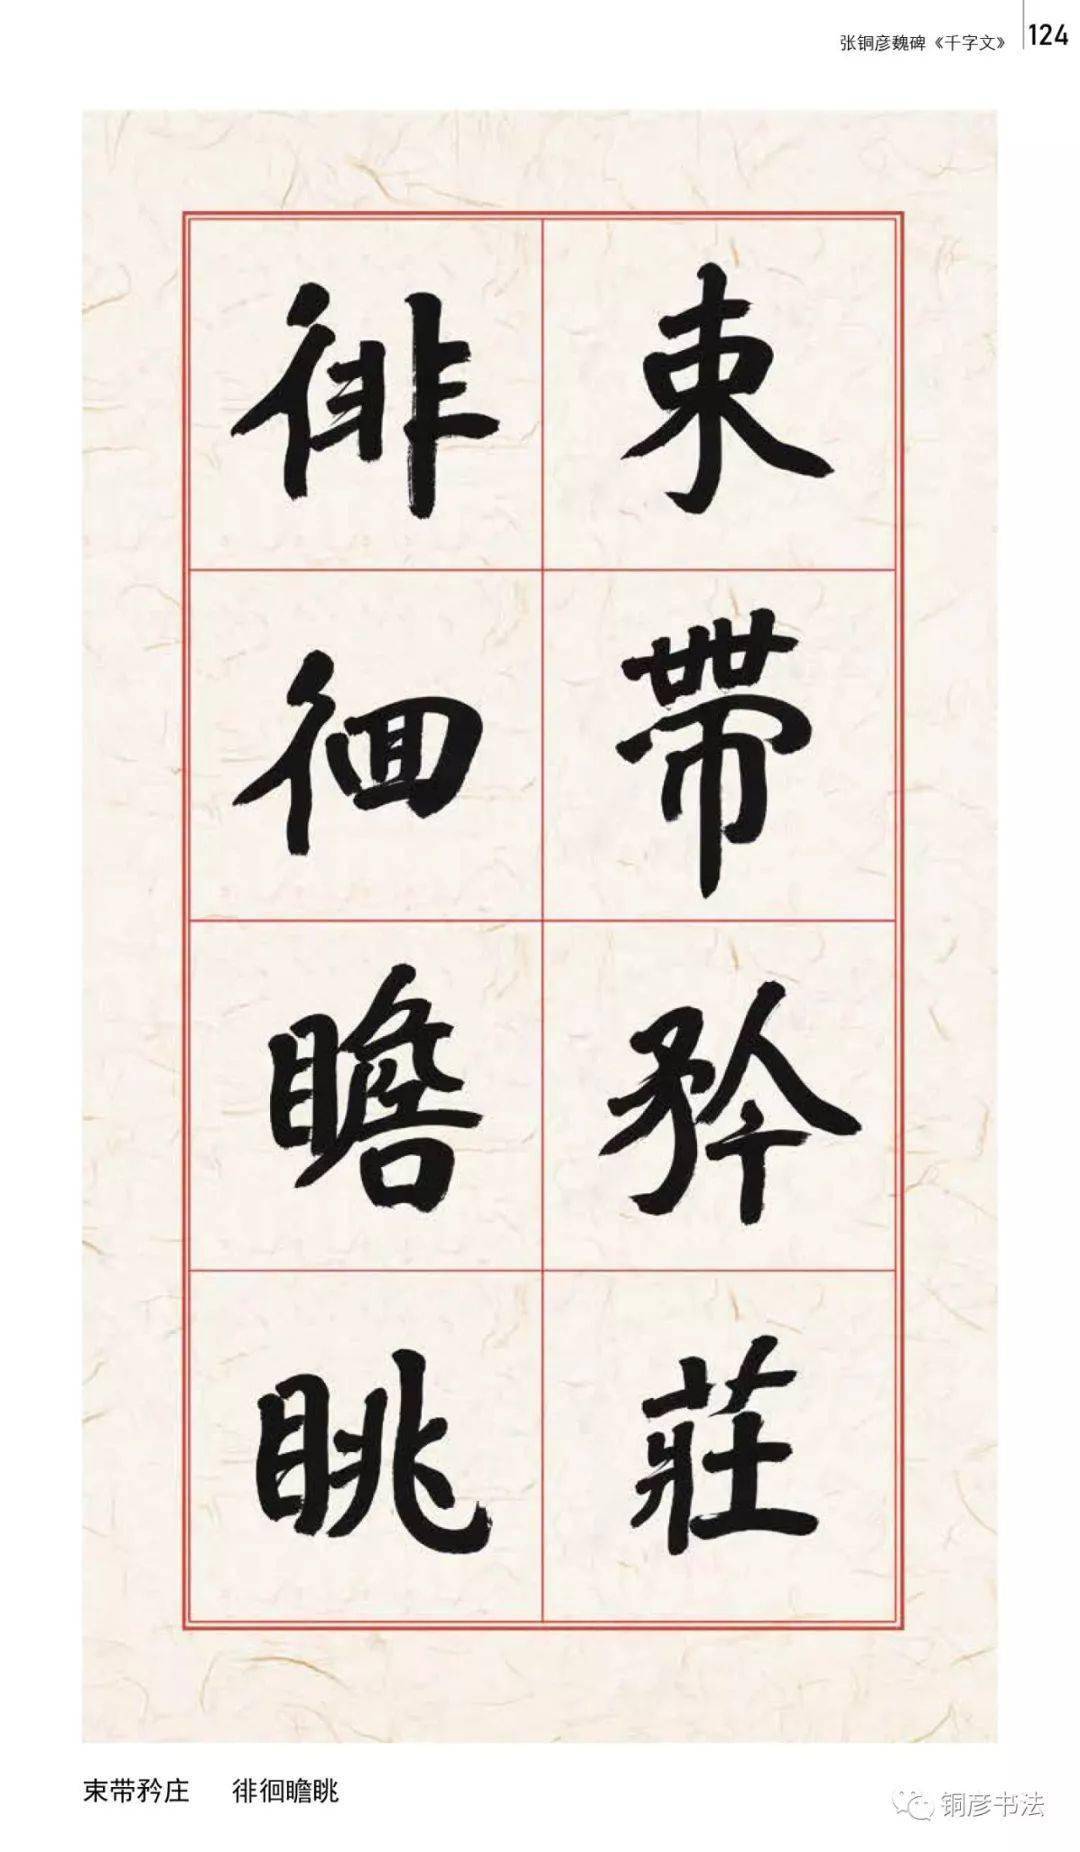 张铜彦魏碑《千字文》 124
束帶矜莊
徘徊瞻眺
束带矜庄 徘徊瞻眺
铜彦书法